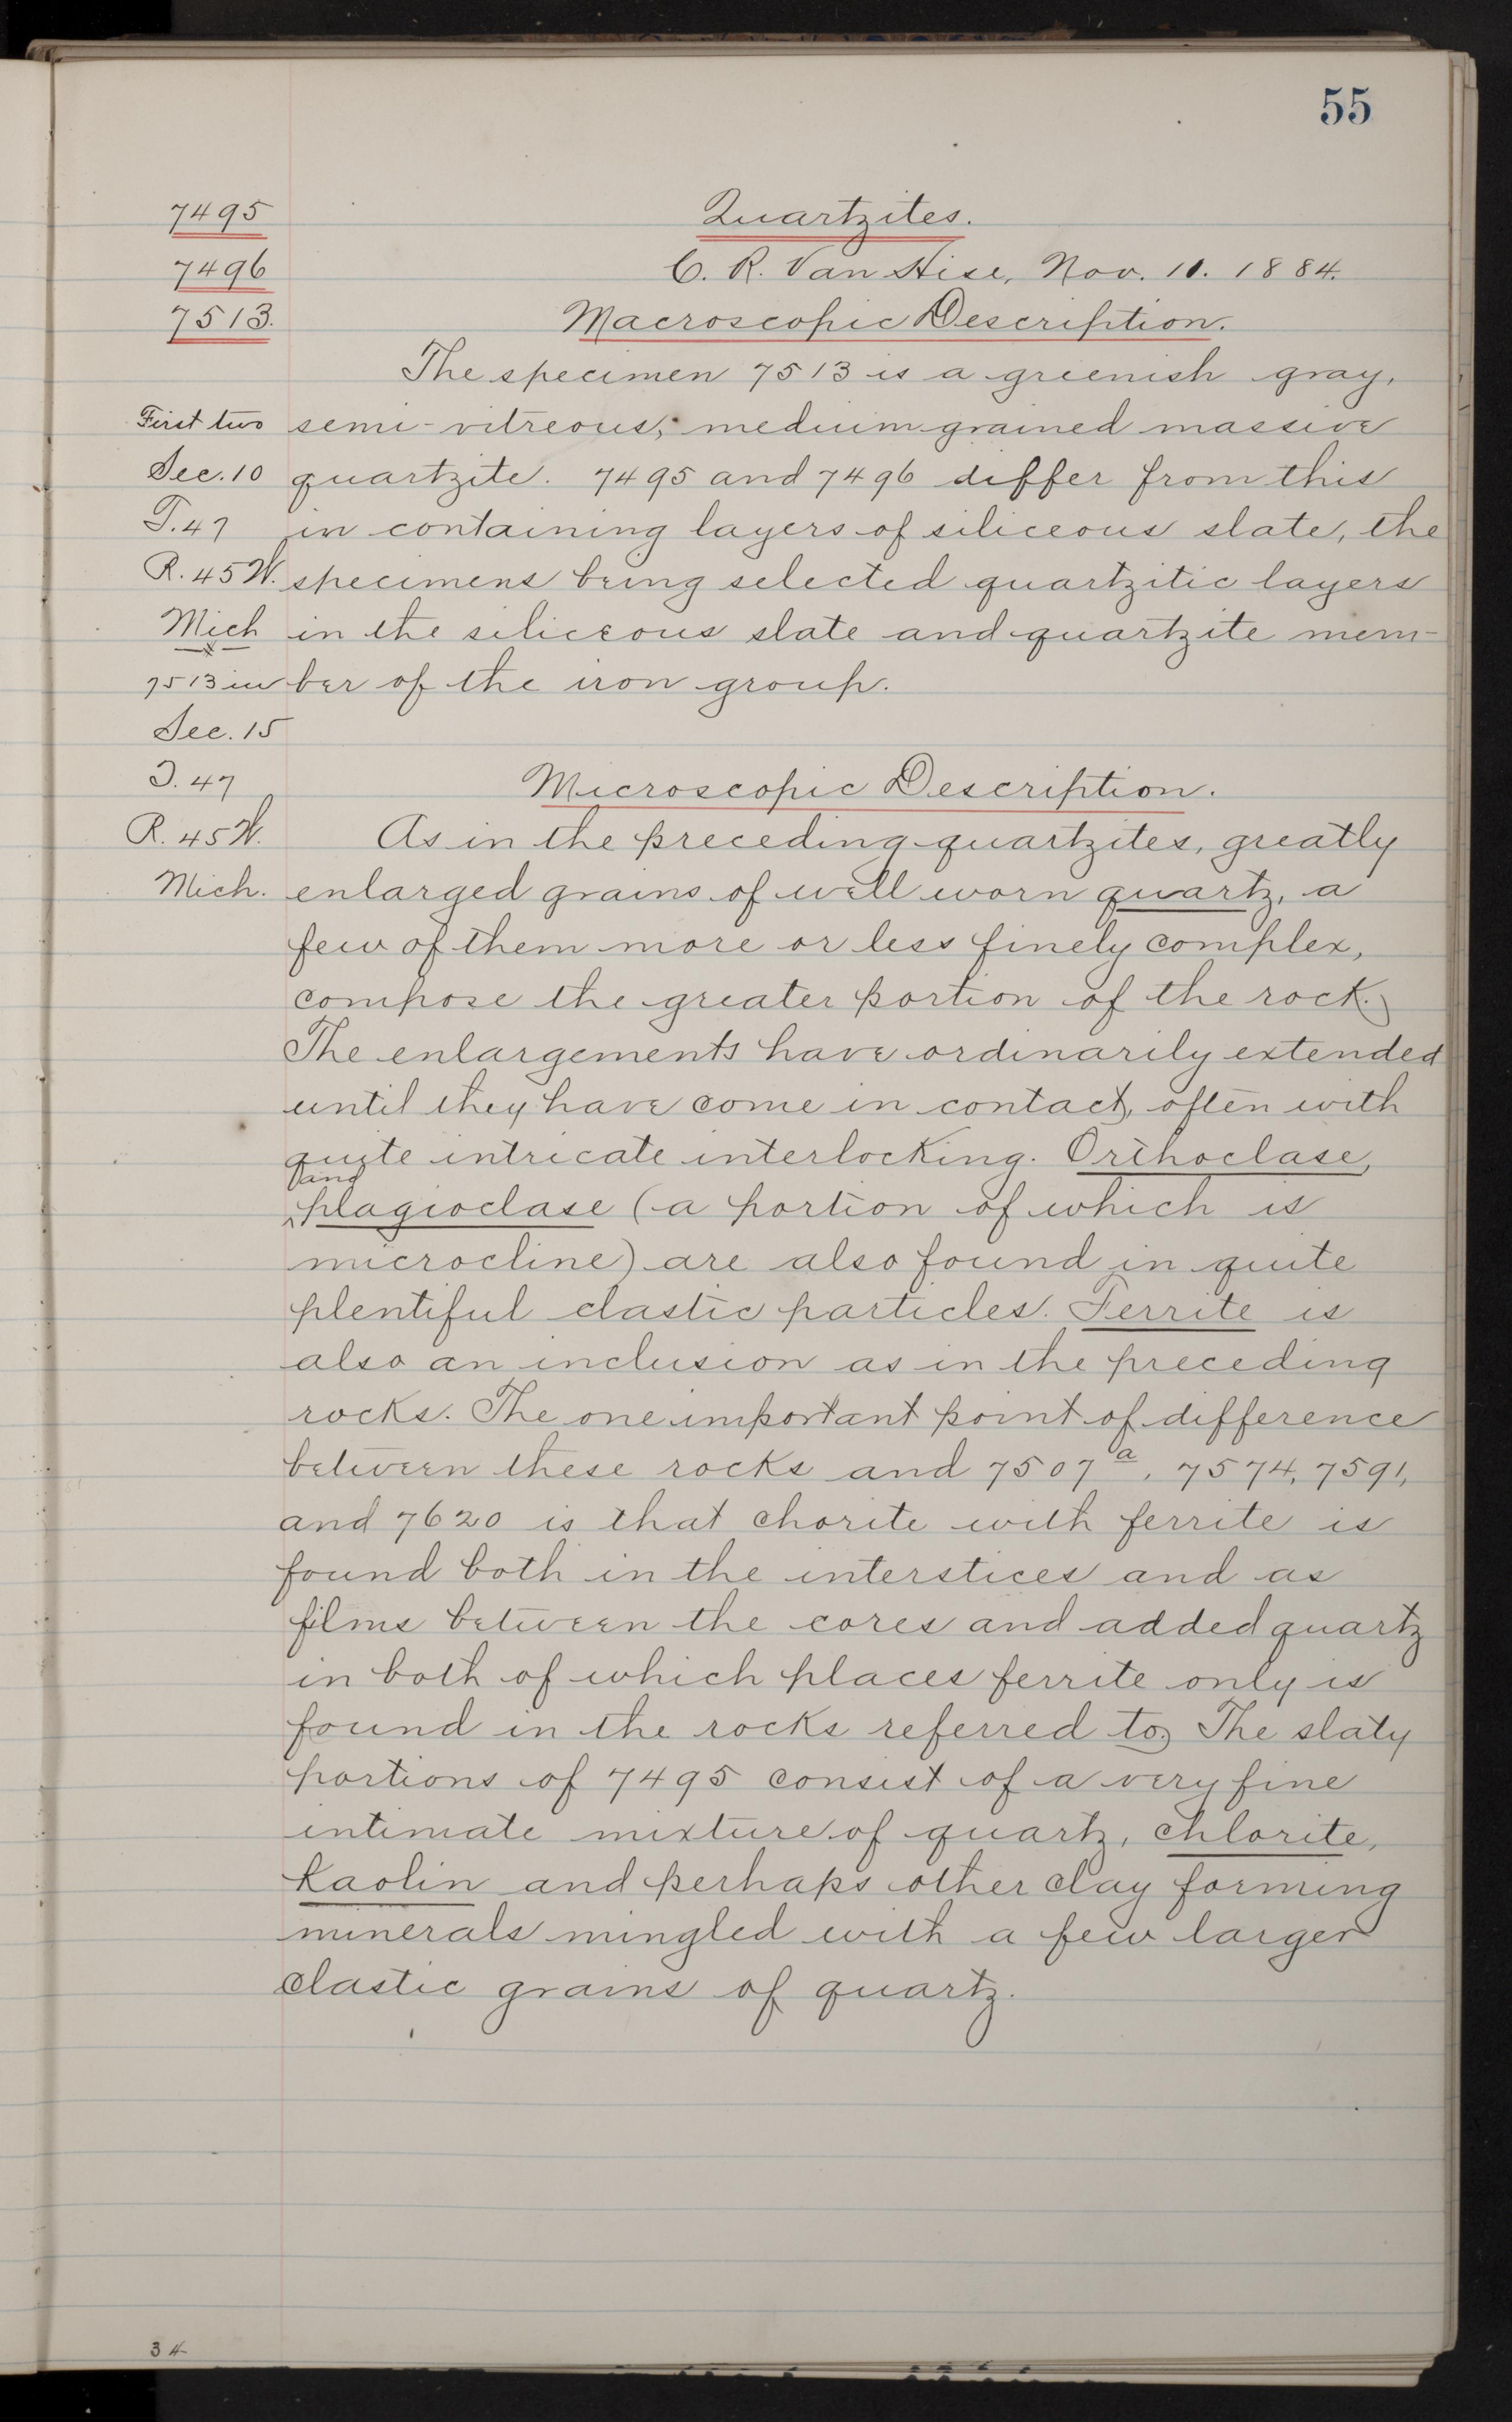 55
7495
Quartzites.
7496
C. R. Van Hise, Nov. 10. 1884.
7513.
Macroscopic Description.
The specimen 7513 is a greenish gray,
First two
semi-vitreous, medium grained massive
Sec. 10
quartzite. 7495 and 7496 differ from this
T. 47
in containing layers of siliceous slate, the
R. 45 W.
specimens being selected quartzitic layers
Mich
in the siliceous slate and quartzite mem-
7513 in
ber of the iron group.
Sec. 15
T. 47
Microscopic Description.
R. 45 W.
As in the preceding quartzites, greatly
Mich.
enlarged grains of well worn quartz, a
few of them more or less finely complex,
compose the greater portion of the rock.
The enlargements have ordinarily extended
until they have come in contact, often with
quite intricate interlocking. Orthoclase,
and
plagioclase (a portion of which is
microcline) are also found in quite
plentiful clastic particles. Ferrite is
also an inclusion as in the preceding
rocks. The one important point of difference
between these rocks and 7507a, 7574, 7591,
and 7620 is that chorite with ferrite is
found both in the interstices and as
films between the cores and added quartz
in both of which places ferrite only is
found in the rocks referred to. The slaty
portions of 7495 consist of a very fine
intimate mixture of quartz, chlorite,
kaolin and perhaps other clay forming
minerals mingled with a few larger
clastic grains of quartz.
34